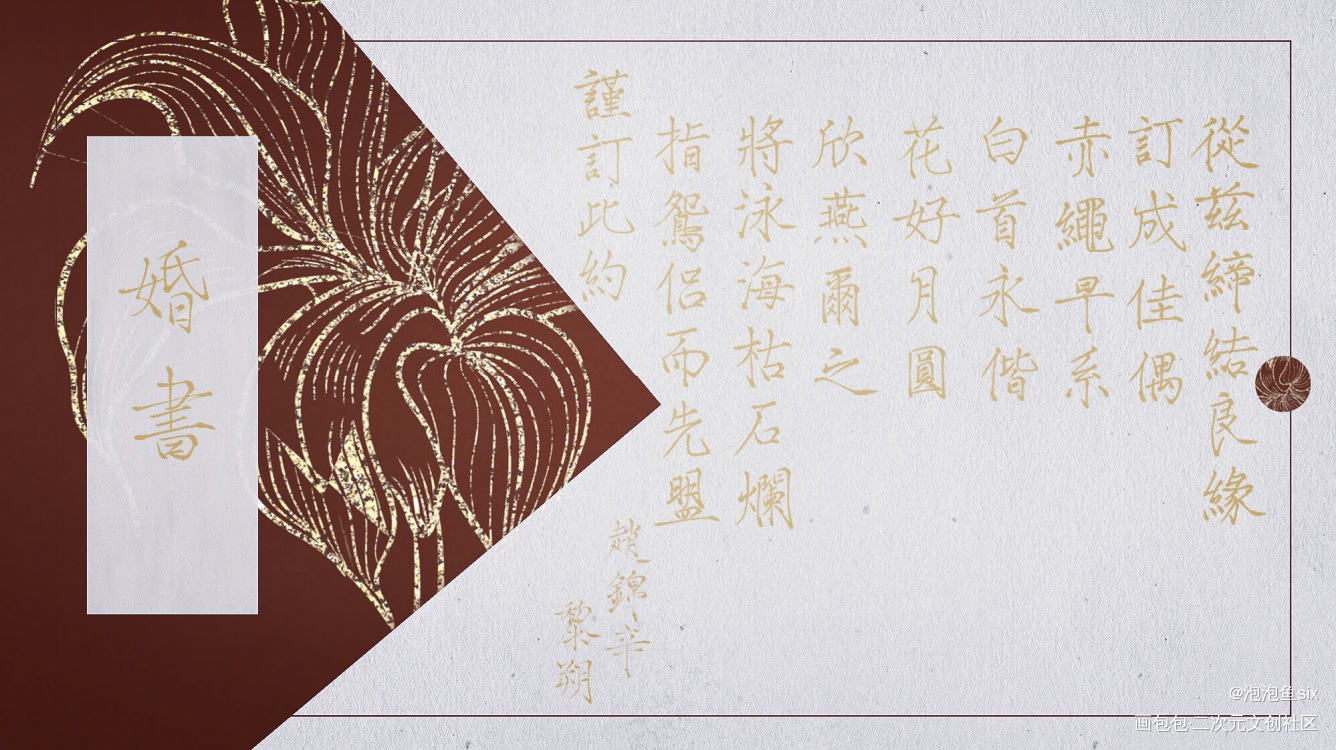 婚書
從茲締結良緣
訂成佳偶
赤繩早系
白首永偕
花好月圓
欣燕爾之
將泳海枯石爛
指鴛侶而先盟
謹訂此約
趙錦辛
黎朔
@泡泡鱼six
画包包·二次元文创社区